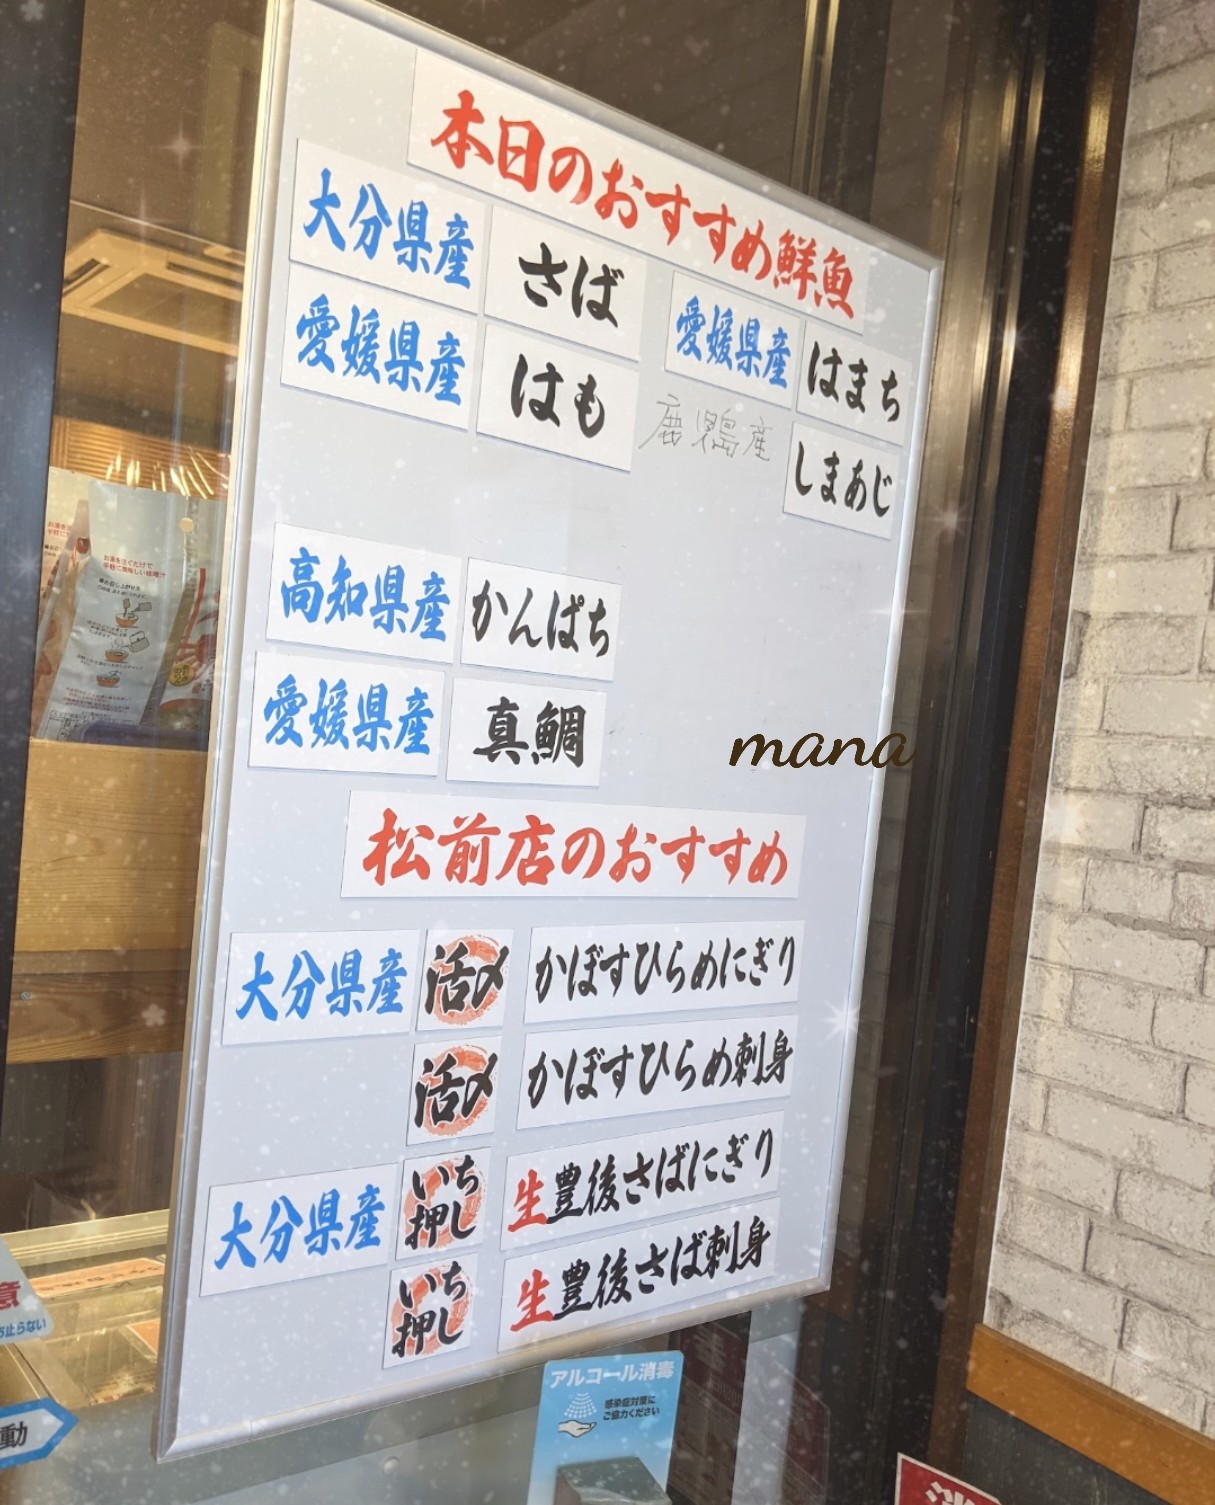 本日のおすすめ鮮魚
大分県産 さば
愛媛県産 はも
愛媛県産 はまち
鹿児島産 しまあじ
高知県産 かんぱち
愛媛県産 真鯛
mana
松前店のおすすめ
大分県産 活〆 かぼすひらめにぎり
活〆 かぼすひらめ刺身
大分県産 いち押し 生豊後さばにぎり
いち押し 生豊後さば刺身
アルコール消毒
感染症対策に
ご協力ください
お湯を注ぐだけで
手軽に美味しい味噌汁
意
止らない
動